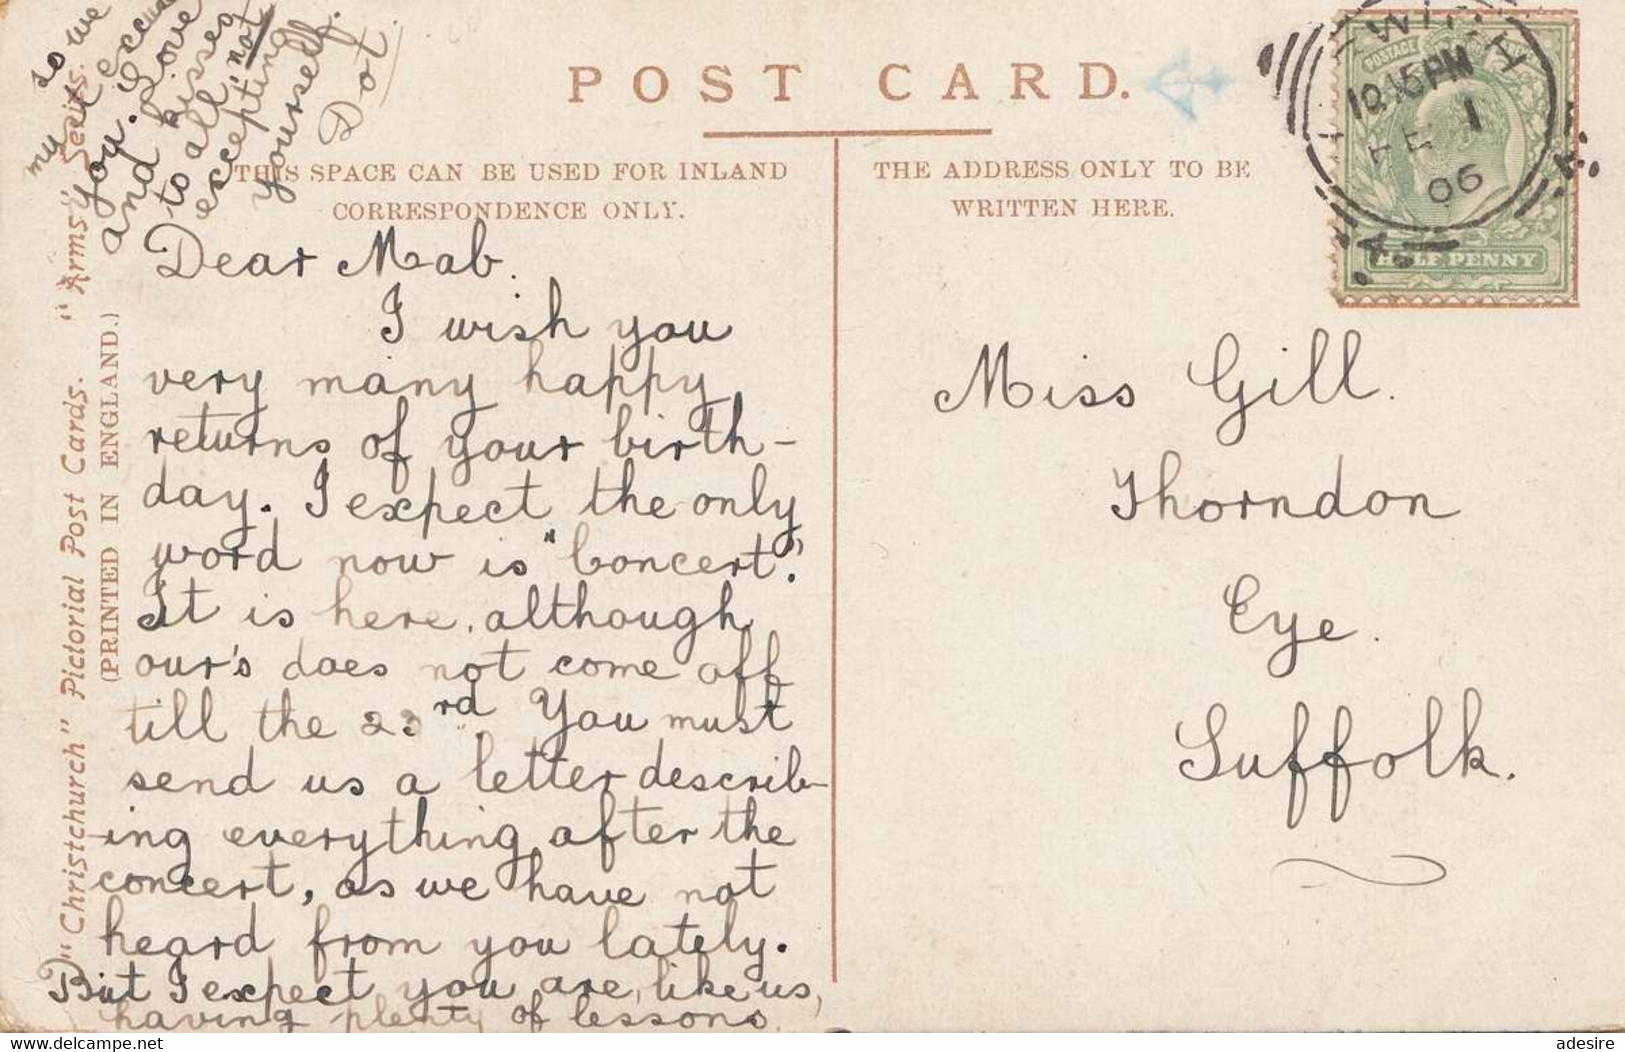 POST CARD.
THIS SPACE CAN BE USED FOR INLAND
CORRESPONDENCE ONLY.
THE ADDRESS ONLY TO BE
WRITTEN HERE.
10.15 PM
FE 1
06
POSTAGE
HALFPENNY
"Christchurch" Pictorial Post Cards. "Arms" Series.
(PRINTED IN ENGLAND.)
Dear Mab.
I wish you
very many happy
returns of your birth-
day. I expect the only
word now is "Concert".
It is here, although
our's does not come off
till the 23rd. You must
send us a letter describ-
ing everything after the
concert, as we have not
heard from you lately.
But I expect you are, like us,
having plenty of lessons
so we
must excuse
you. Love
and kisses
to all, not
excepting
yourself.
Dot
Miss Gill.
Thorndon
Eye.
Suffolk.
adesire
www.delcampe.net